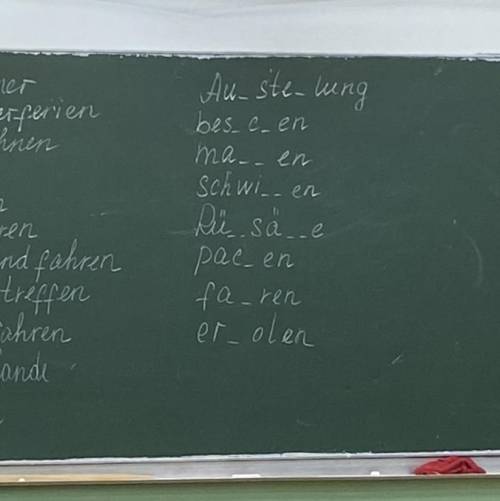 ner
erferien
hnen
n
ren
nd fahren
treffen
fahren
ande
Au_ ste_ lung
bes_ c_ en
ma_ _ en
schwi_ _ en
Rü_ _ sä_ _ e
pac_ en
fa_ ren
er_ olen